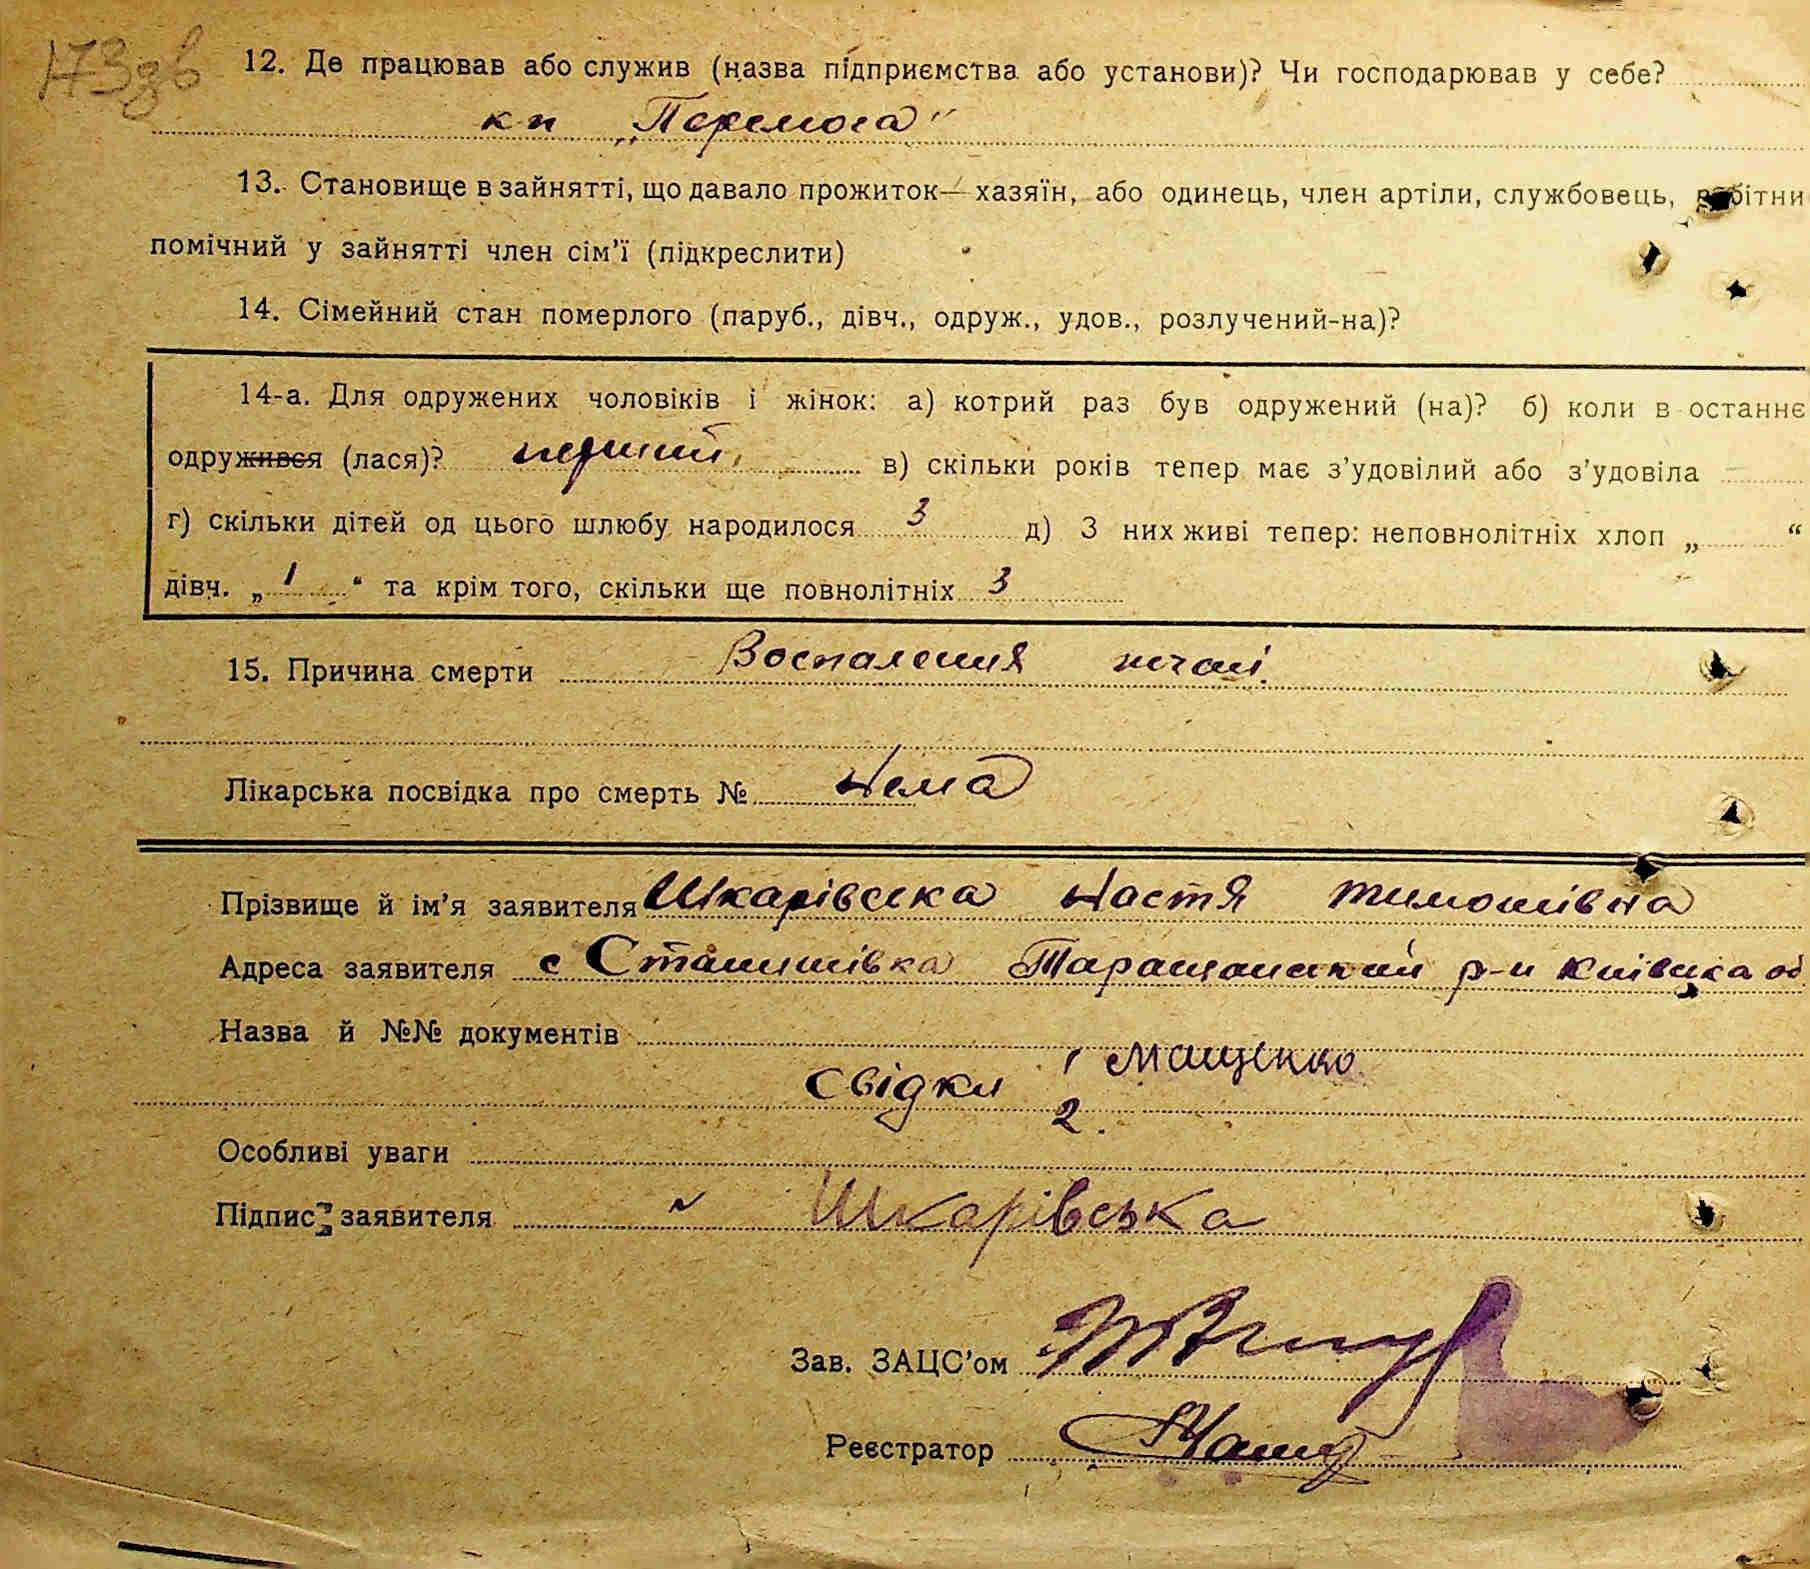 173зв
12. Де працював або служив (назва підприємства або установи)? Чи господарював у себе?
к-п „Перемога"
13. Становище в зайнятті, що давало прожиток— хазяїн, або одинець, член артілі, службовець, робітни
помічний у зайнятті член сім’ї (підкреслити)
14. Сімейний стан померлого (паруб., дівч., одруж., удов., розлучений-на)?
14-а. Для одружених чоловіків і жінок: а) котрий раз був одружений (на)? б) коли в останнє
одружився (лася)? перший в) скільки років тепер має з’удовілий або з’удовіла
г) скільки дітей од цього шлюбу народилося 3 д) З них живі тепер: неповнолітніх хлоп „ “
дівч. „ 1 “ та крім того, скільки ще повнолітніх 3
15. Причина смерти Воспаления
Лікарська посвідка про смерть № Нема
Прізвище й ім’я заявителя Шкарівска Настя Тимошівна
Адреса заявителя с Станишівка Таращанский р-н Київска об
Назва й №№ документів
Свідки 1 Мащенко
2.
Особливі уваги
Підпис заявителя Шкарівська
Зав. ЗАЦС’ом
Реєстратор